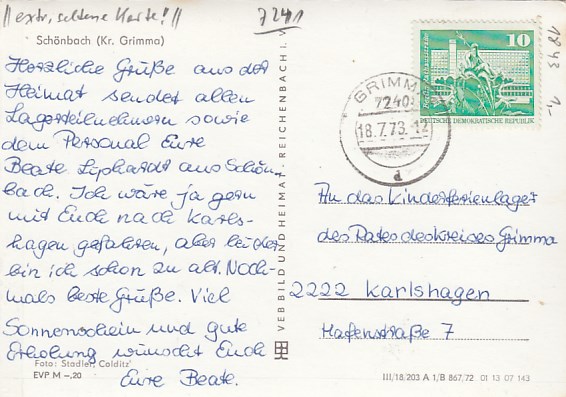 !! extr. seltene Karte! !!
7241
Schönbach (Kr. Grimma)
Herzliche Grüße aus der
Heimat sendet allen
Lagerteilnehmern sowie
dem Personal Eure
Beate Liphardt aus Schön-
bach. Ich wäre ja gern
mit Euch nach Karls-
hagen gefahren, aber leider
bin ich schon zu alt. Noch-
mals beste Grüße. Viel
Sonnenschein und gute
Erholung wünscht Euch
Eure Beate.
Foto: Stadler, Colditz
EVP M -,20
VEB BILD UND HEIMAT REICHENBACH I. V.
GRIMMA
7240
18.7.73.12
d
10
DEUTSCHE DEMOKRATISCHE REPUBLIK
1843
1.-
An das Kinderferienlager
des Rates des Kreises Grimma
2222 Karlshagen
Hafenstraße 7
III/18/203 A 1/B 867/72 01 13 07 143